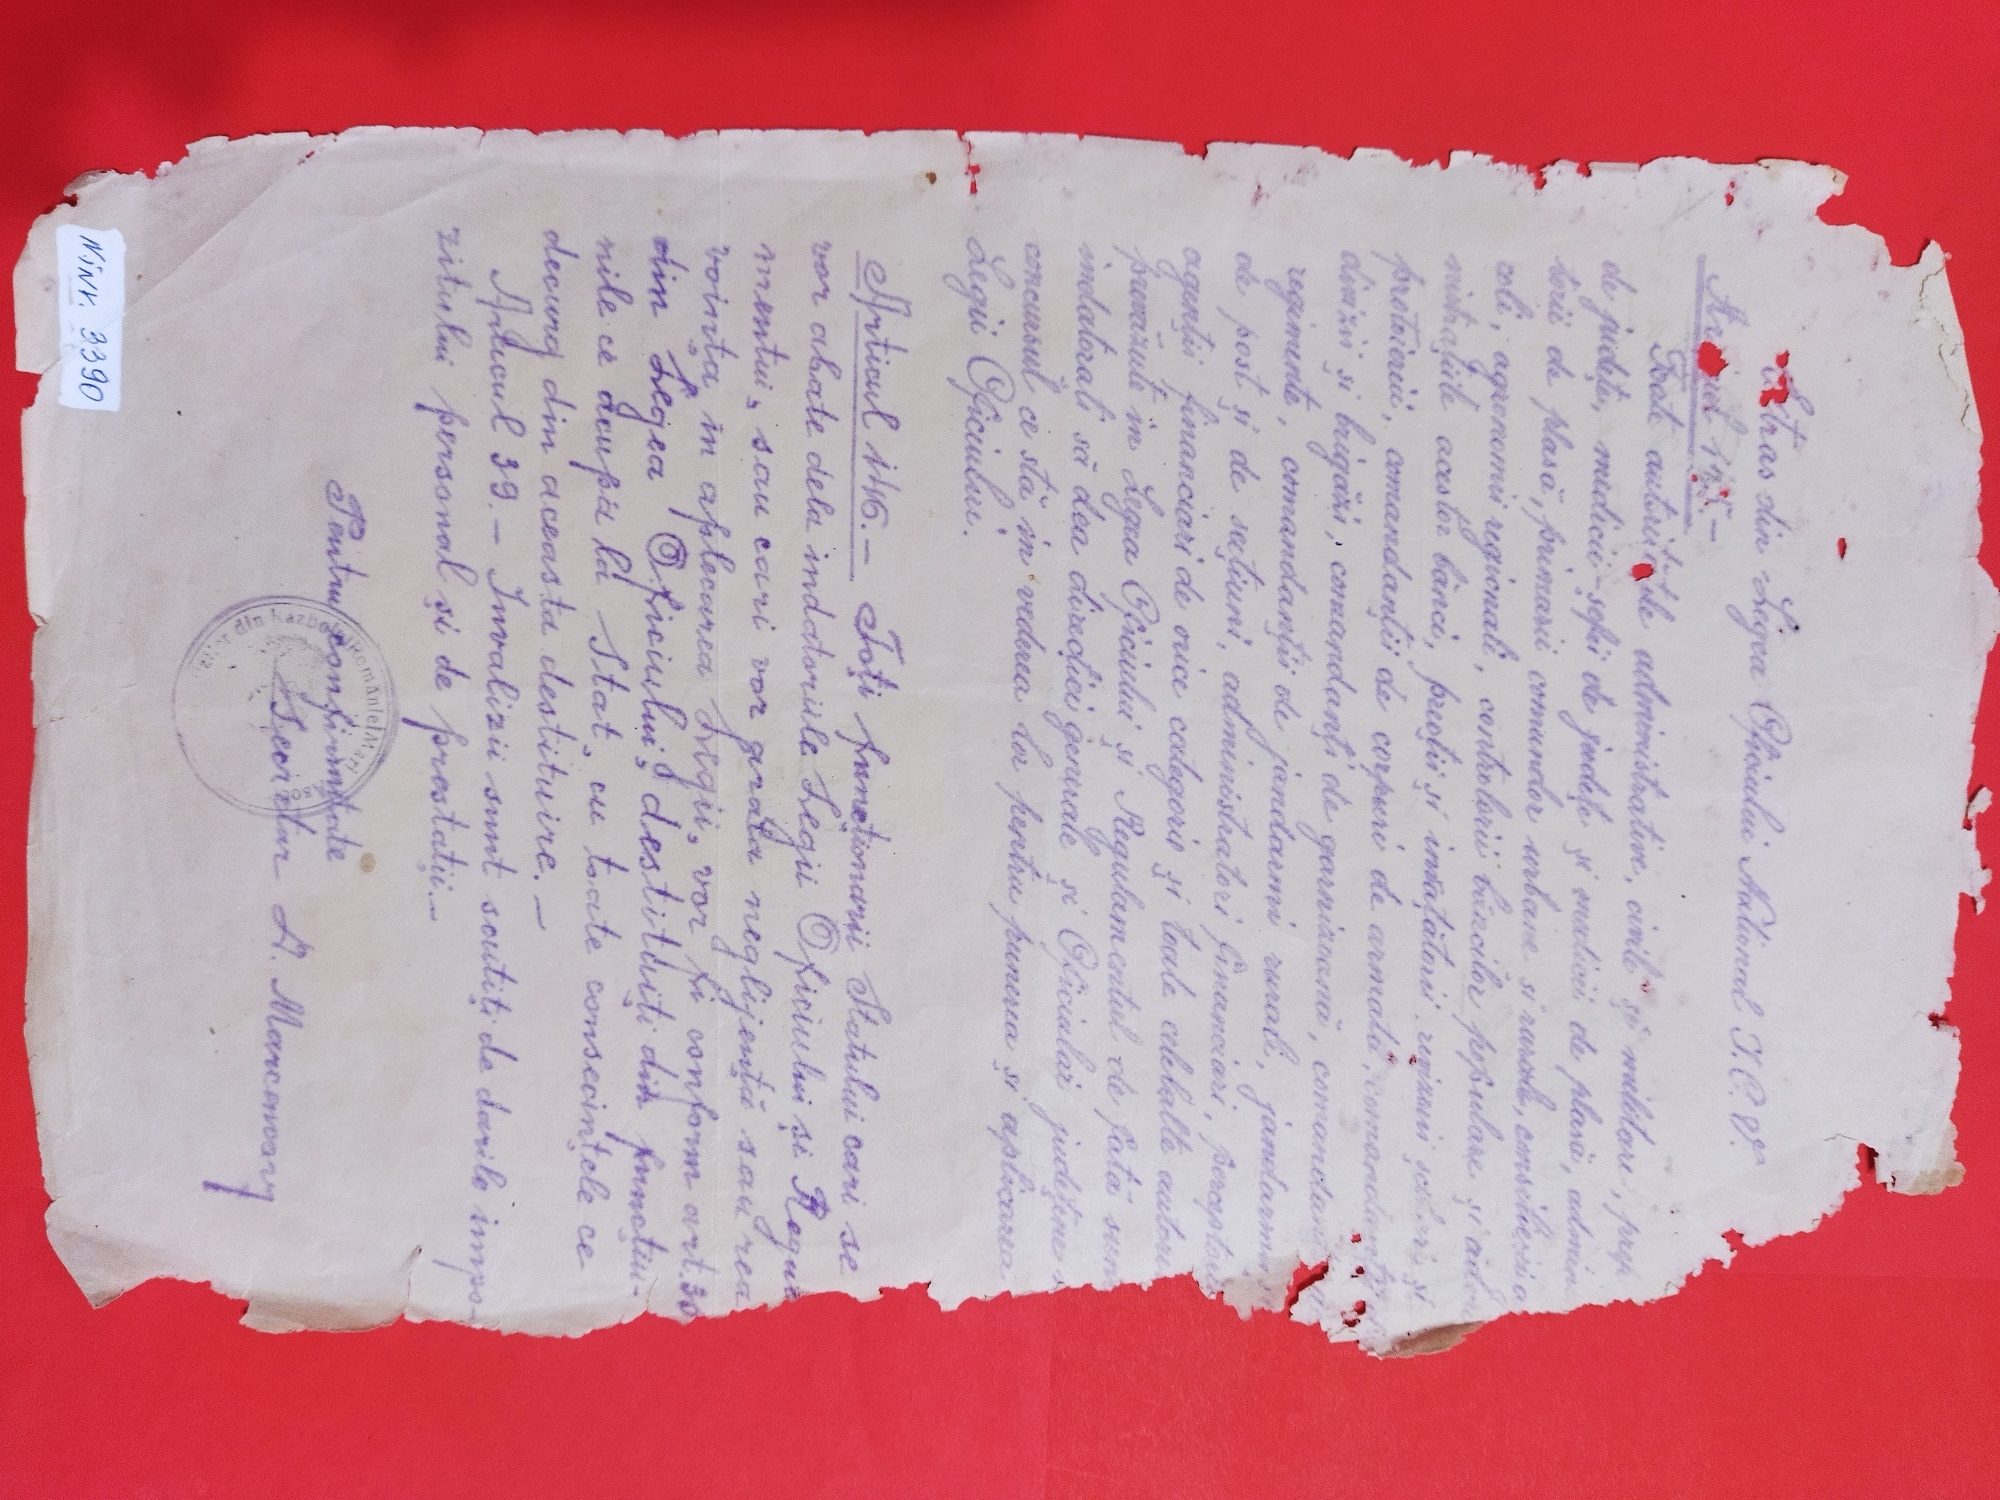 Extras din Legea Oficiului Național I.O.V.
Toate autoritățile administrative, civile și militare, prefe
de județe, medicii-șefi de județe și medicii de plasă, admini
torii de plasă, primarii comunelor urbane și rurale, consilieri a
coli, agronomi regionali, controlorii băncilor populare și admi
nistrațiile acestor bănci, preoții și învățătorii, revizorii școlari și
protoierii, comandanții de corpuri de armată, comandanții de
divizii și brigăzi, comandanți de garnizoană, comandanți
regimente, comandanții de jandarmi rurali, jandarmi
de post și de secțiuni, administratori financiari, perceptori
agenții financiari de orice categorie și toate celelalte autori
prevăzute în Legea Oficiului și Regulamentul de față sunt
îndatorați să dea direcției generale și Oficiului județene
concursul ce stă în vederea lor pentru punerea și aplicarea
Legii Oficiului.
Articol 146.— Toți funcționarii Statului cari se
vor abate dela îndatoriile Legii Oficiului și Regula
mentui, sau cari vor arăta neglijență sau rea
voința în aplecarea Legii, vor fi conform art. 36
din Legea Oficiului, destituiți din funcțiu-
nile ce ocupă la Stat, cu toate consecințele ce
decurg din aceasta destituire.—
Articol 39.— Invalizii sunt scutiți de darile impo-
zitului personal și de prestații.—
Pentru conformitate
Secretar D.
NINV. 3390